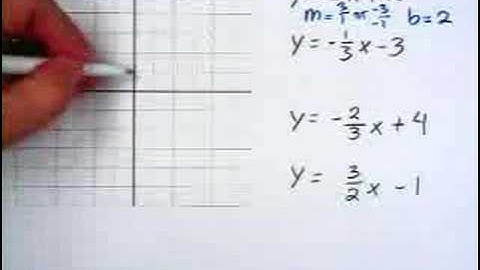 m = 3/1 or -3/-1 b = 2
y = -1/3 x - 3
y = -2/3 x + 4
y = 3/2 x - 1